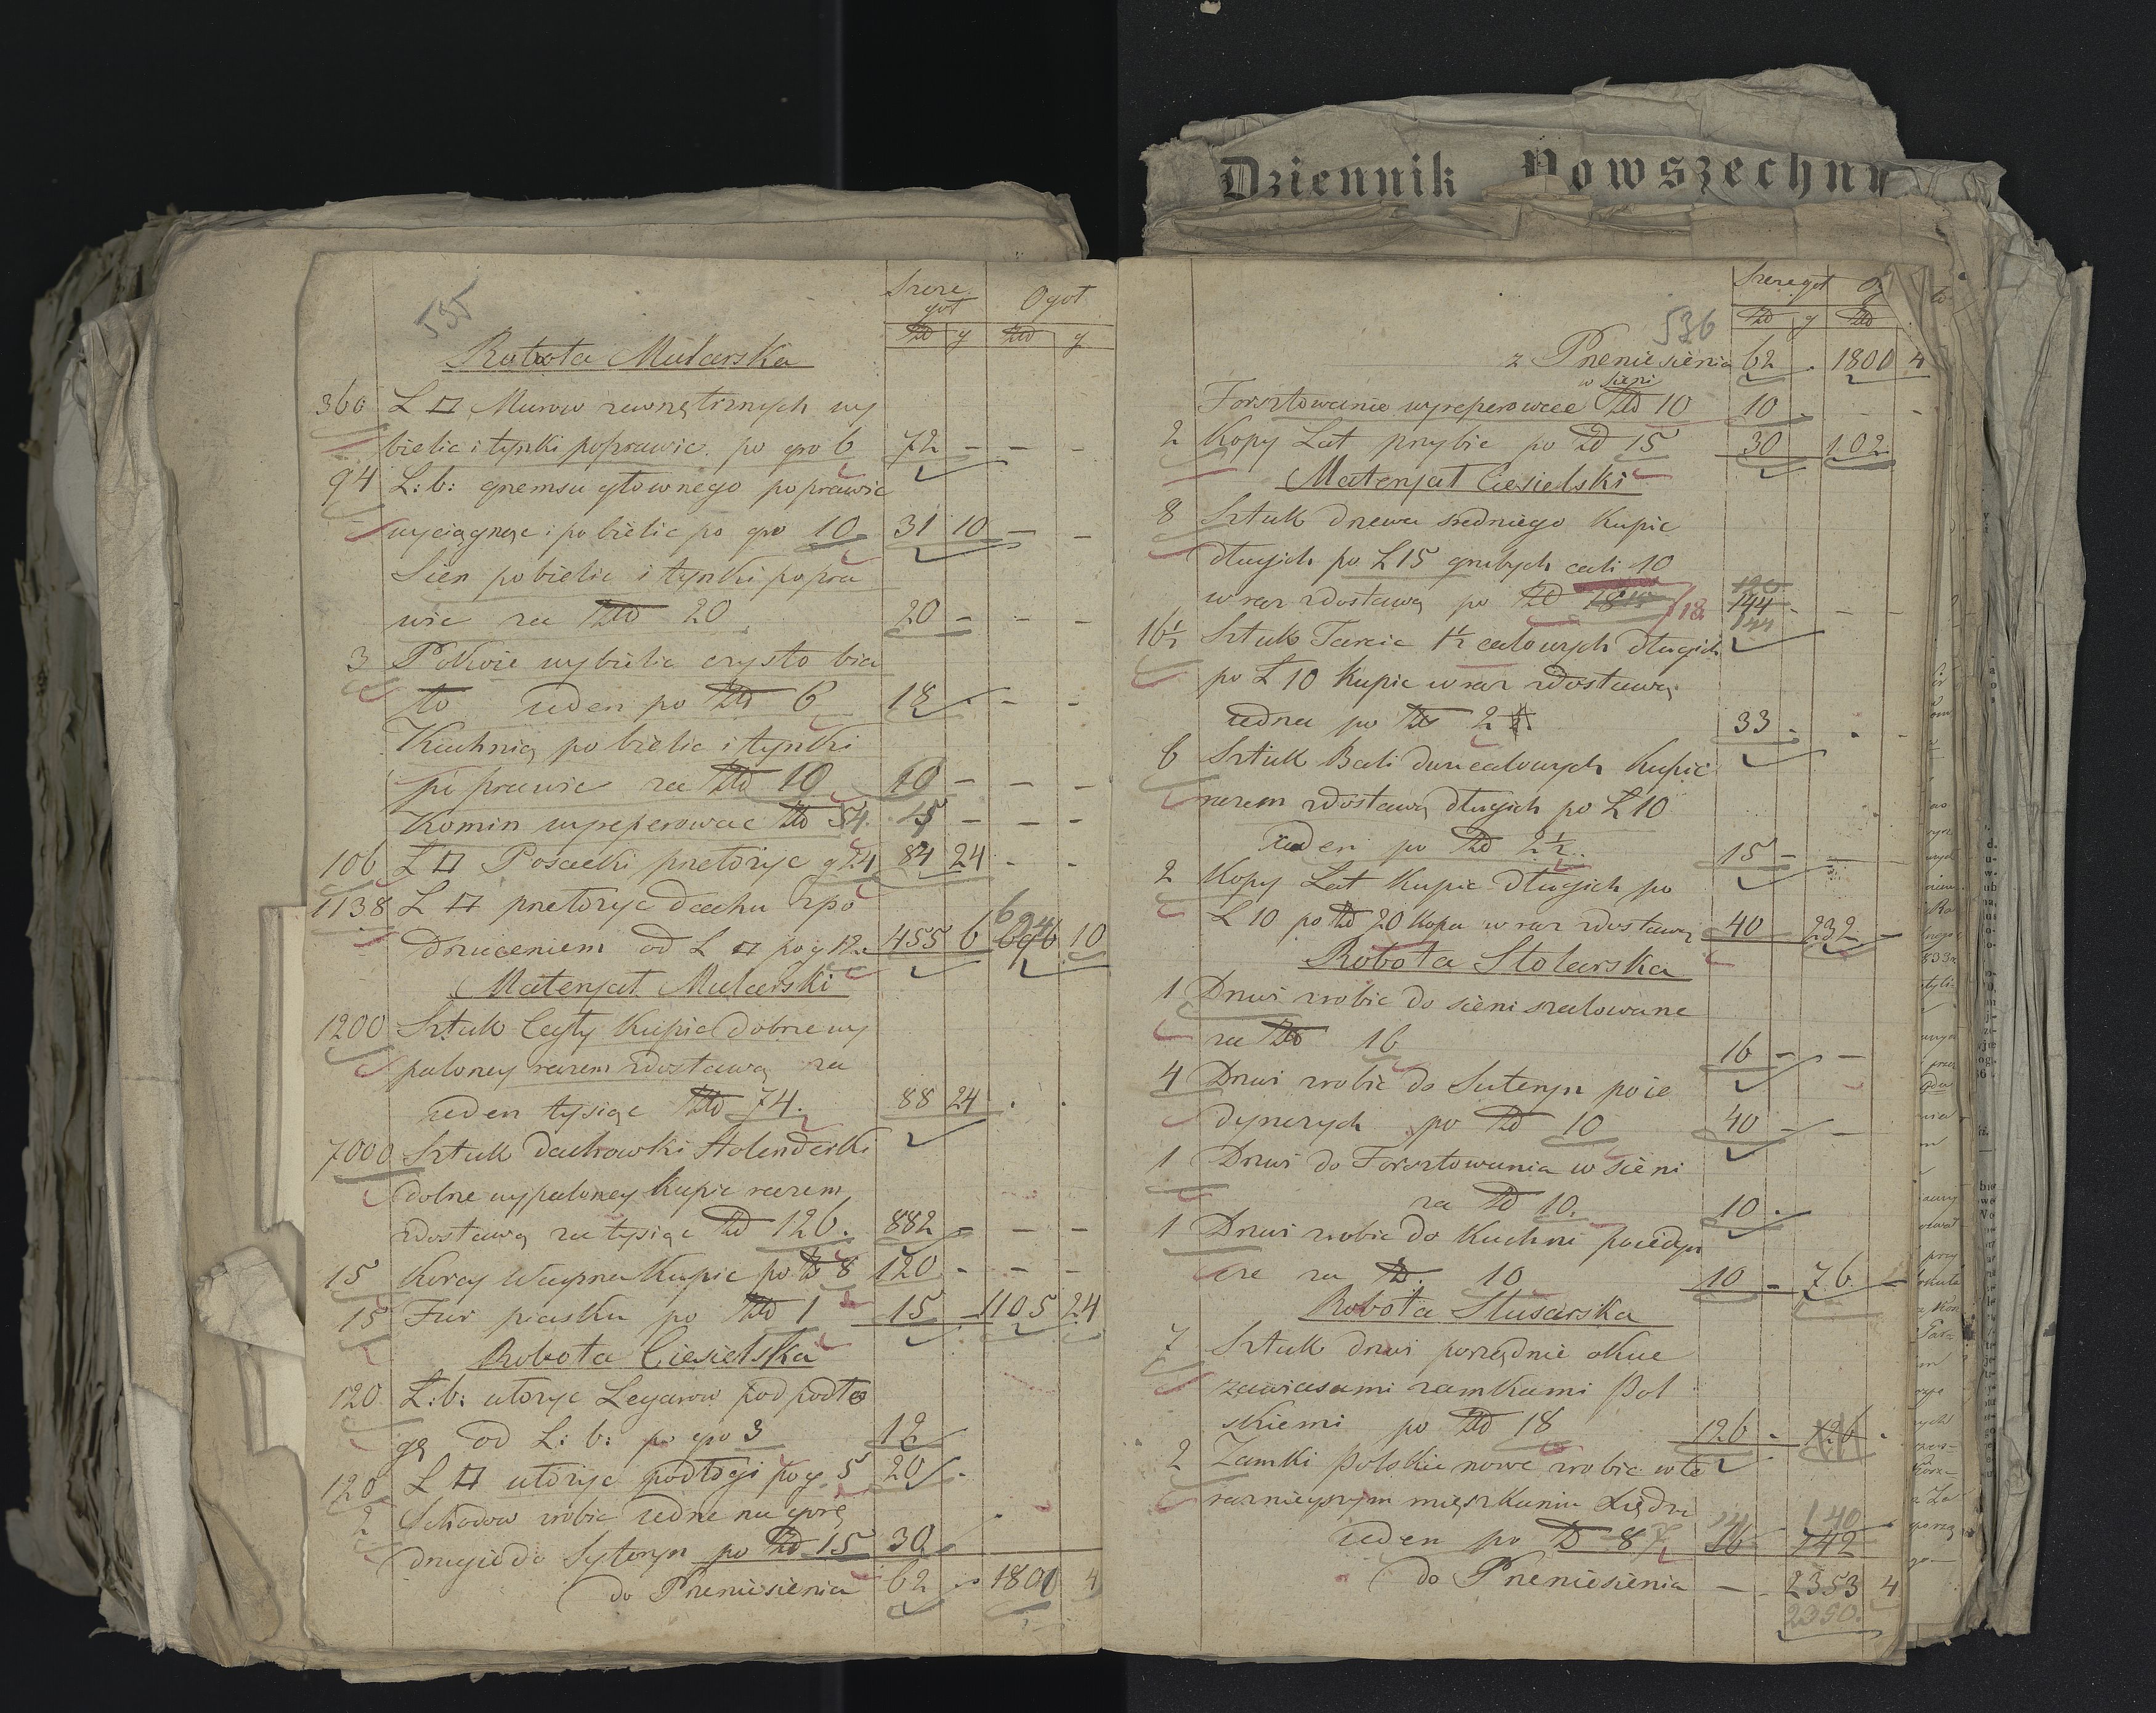 Dziennik Powszechny
535
Szcze
gół Ogół
Złł g Złł g
Robota Mularska
360 Ł □ Murow zewnętrznych wy
bielic i tynki poprawic. po gro 6 72 - - -
94 Ł: b: gzemsu głownego poprawic
wyciągnąc i pobielic po gro 10. 31 10 - -
Sien pobielic i tynki popra
wic za Złł 20 20 - - -
3 Pokoie wybielic czysto bia
ło ieden po Złł 6 18 . - -
Kuchnią pobielic i tynki
poprawic za Złł 10 10 - - -
Komin wyreperowac Złł 5 - - -
106 Ł □ Posacki przełozyc g 24 84 24 - -
1138 Ł □ przełozyc dachu zpo
drzuceniem od Ł □ po g 12. 455 6 696 10
Materjał Mularski
1200 Sztuk Cegły Kupic dobrze wy
paloney razem zdostawą za
ieden tysiąc Złł 74. 88 24 . .
7000 Sztuk dachowki Holenderki
dobrze wypaloney Kupic razem
zdostawą za tysiąc Zł 126. 882 - - -
15 Korcy Wapna Kupic po Zł 8 120 - - -
15 Fur piasku po Złł 1 15 1105 24
Robota Ciesielska
120 Ł: b: ułozyc Legarow pod podło
gę od Ł: b: po gro 3 12
120 Ł □ ułozyc podłogi po g. 5 20 .
2 Schodow zrobic iedne na gorę
drugie do Syteryn po Zł 15 30
do Przeniesienia 62 . 1801 4
536
Szczegół Og
Złł g Złł
z Przeniesienia 62 . 1800 4
w sieni
Forsztowanie wyreperowac Złł 10 10 - - -
2 Kopy Łat przybic po Zł 15 30 102
Materjał Ciesielski
8 Sztuk drzewa sredniego Kupic
długich po Ł 15 grubych cali 10
wraz zdostawą po Zł 18 144 - - -
16½ Sztuk Tarcic 1½ calowych długich
po Ł 10 Kupic wraz zdostawą
iedna po Złł 2 33 . . -
6 Sztuk Bali dwucalowych Kupic
razem zdostawą długich po Ł 10
ieden po Zł 2½. 15 - -
2 Kopy Łat Kupic długich po
Ł 10 po Zł 20 Kopa wraz zdostawą 40 232 -
Robota Stolarska
1 Drzwi zrobic do sieni szalowane
za Złł 16 16 - -
4 Drzwi zrobic do Suteryn poie
dynczych po Zł 10 40 - -
1 Drzwi do Forsztowania w sieni
za Zł 10. 10 .
1 Drzwi zrobic do Kuchni poiedyn
cze za Zł. 10 10 - 76 -
Robota Slusarska
7 Sztuk drzwi porządnie okuc
zawiasami zamkami Pol
skiemi po Złł 18 126 . 126 .
2 Zamki Polskie nowe zrobic wte
raznieyszym mięszkaniu
ieden po Zł 8 16 142
140
do Przeniesienia - . 2353 4
2350.